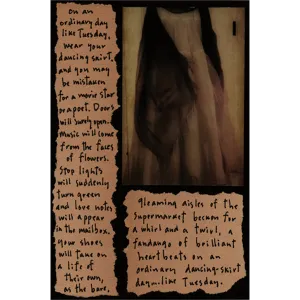 on an
ordinary day
like Tuesday,
wear your
dancing skirt,
and you may
be mistaken
for a movie star
or a poet. Doors
will surely open...
Music will come
from the faces
of flowers.
Stop lights
will suddenly
turn green
and love notes
will appear
in the mailbox.
your shoes
will take on
a life of
their own,
as the bare,
gleaming aisles of the
supermarket beckon for
a whirl and a twirl, a
fandango of brilliant
heartbeats on an
ordinary dancing-skirt
day...like Tuesday.